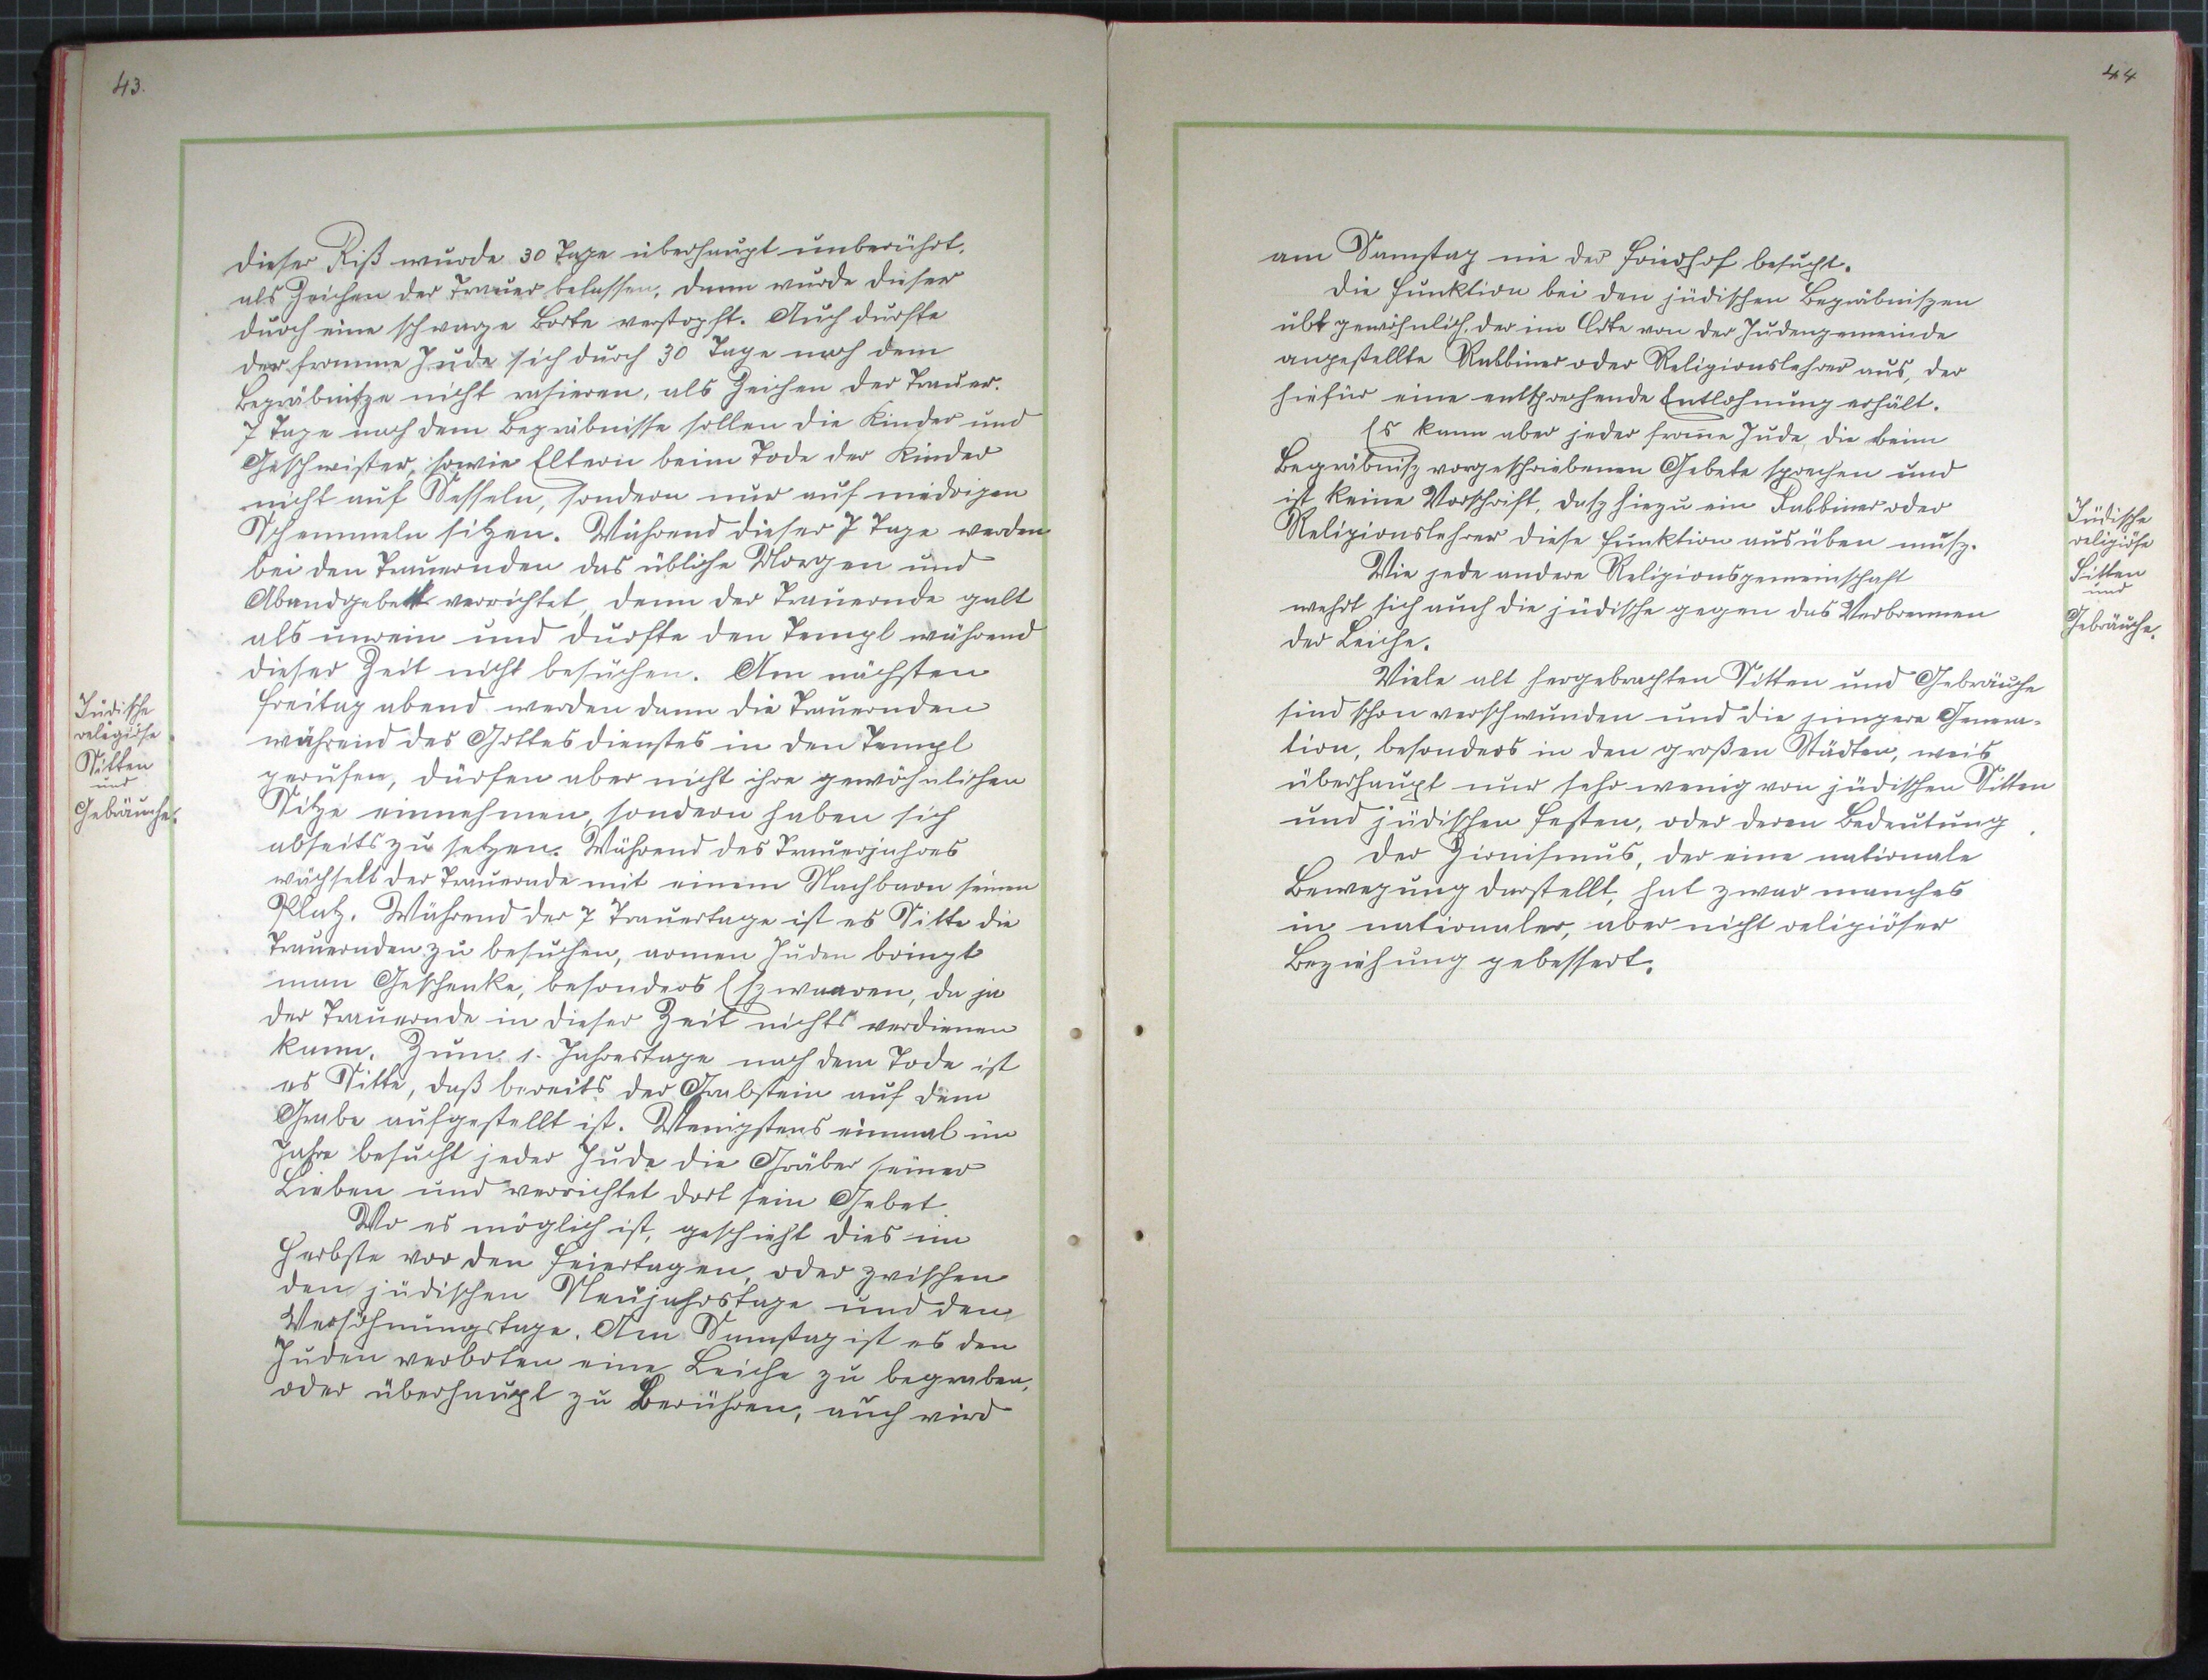 43.
dieser Riß wurde 30 Tage überhaupt unberührt,
als Zeichen der Trauer belassen, dann wurde dieser
durch eine schwarze Borte verstopft. Auch durfte
der fromme Jude sich durch 30 Tage nach dem
Begräbnisze nicht rasieren, als Zeichen der Trauer.
7 Tage nach dem Begräbnisse sollen die Kinder und
Geschwister, sowie Eltern beim Tode der Kinder
nicht auf Sesseln, sondern nur auf niedrigen
Schemmeln sitzen. Während dieser 7 Tage werden
bei den Trauernden das übliche Morgen und
Abendgebet verrichtet, denn der Trauernde galt
als unrein und durfte den Templ während
dieser Zeit nicht besuchen. Am nächsten
Freitag abend werden dann die Trauernden
während des Gottesdienstes in den Templ
gerufen, dürfen aber nicht ihre gewöhnlichen
Sitze einnehmen, sondern haben sich
abseits zu setzen. Während des Trauerjahres
wächselt der Trauernde mit einem Nachbarn seinen
Platz. Während der 7 Trauertage ist es Sitte die
Trauernden zu besuchen, armen Juden bringt
man Geschenke, besonders Eszwaaren, da ja
der Trauernde in dieser Zeit nichts verdienen
kann. Zum 1. Jahrestage nach dem Tode ist
es Sitte, daß bereits der Grabstein auf dem
Grabe aufgestellt ist. Wenigstens einmal im
Jahre besucht jeder Jude die Gräber seiner
Lieben und verrichtet dort sein Gebet.
Wo es möglich ist, geschieht dies im
Herbste vor den Feiertagen, oder zwischen
den jüdischen Neujahrstage und dem
Versöhnungstage. Am Samstag ist es den
Juden verboten eine Leiche zu begraben,
oder überhaupt zu Berühren, auch wird
Jüdische
religiöse
Sitten
und
Gebräuche.
44
am Samstag nie der Friedhof besucht.
Die Funktion bei den jüdischen Begräbniszen
übt gewöhnlich, der im Orte von der Judengemeinde
angestellte Rabbiner oder Religionslehrer aus, der
hiefür eine entsprechende Entlohnung erhält.
Es kann aber jeder from̅e Jude, die beim
Begräbnisz vorgeschriebenen Gebete sprechen und
ist keine Vorschrift, dasz hiezu ein Rabbiner oder
Religionslehrer diese Funktion ausüben musz.
Wie jede andere Religionsgemeinschaft
wehrt sich auch die jüdische gegen das Verbrennen
der Leiche.
Viele alt hergebrachten Sitten und Gebräuche
sind schon verschwunden und die jüngere Genera-
tion, besonders in den großen Städten, weis
überhaupt nur sehr wenig von jüdischen Sitten
und jüdischen Festen, oder deren Bedeutung.
Der Zionismus, der eine nationale
Bewegung darstellt, hat zwar manches
in nationaler, aber nicht religiöser
Beziehung gebessert.
Jüdische
religiöse
Sitten
und
Gebräuche.